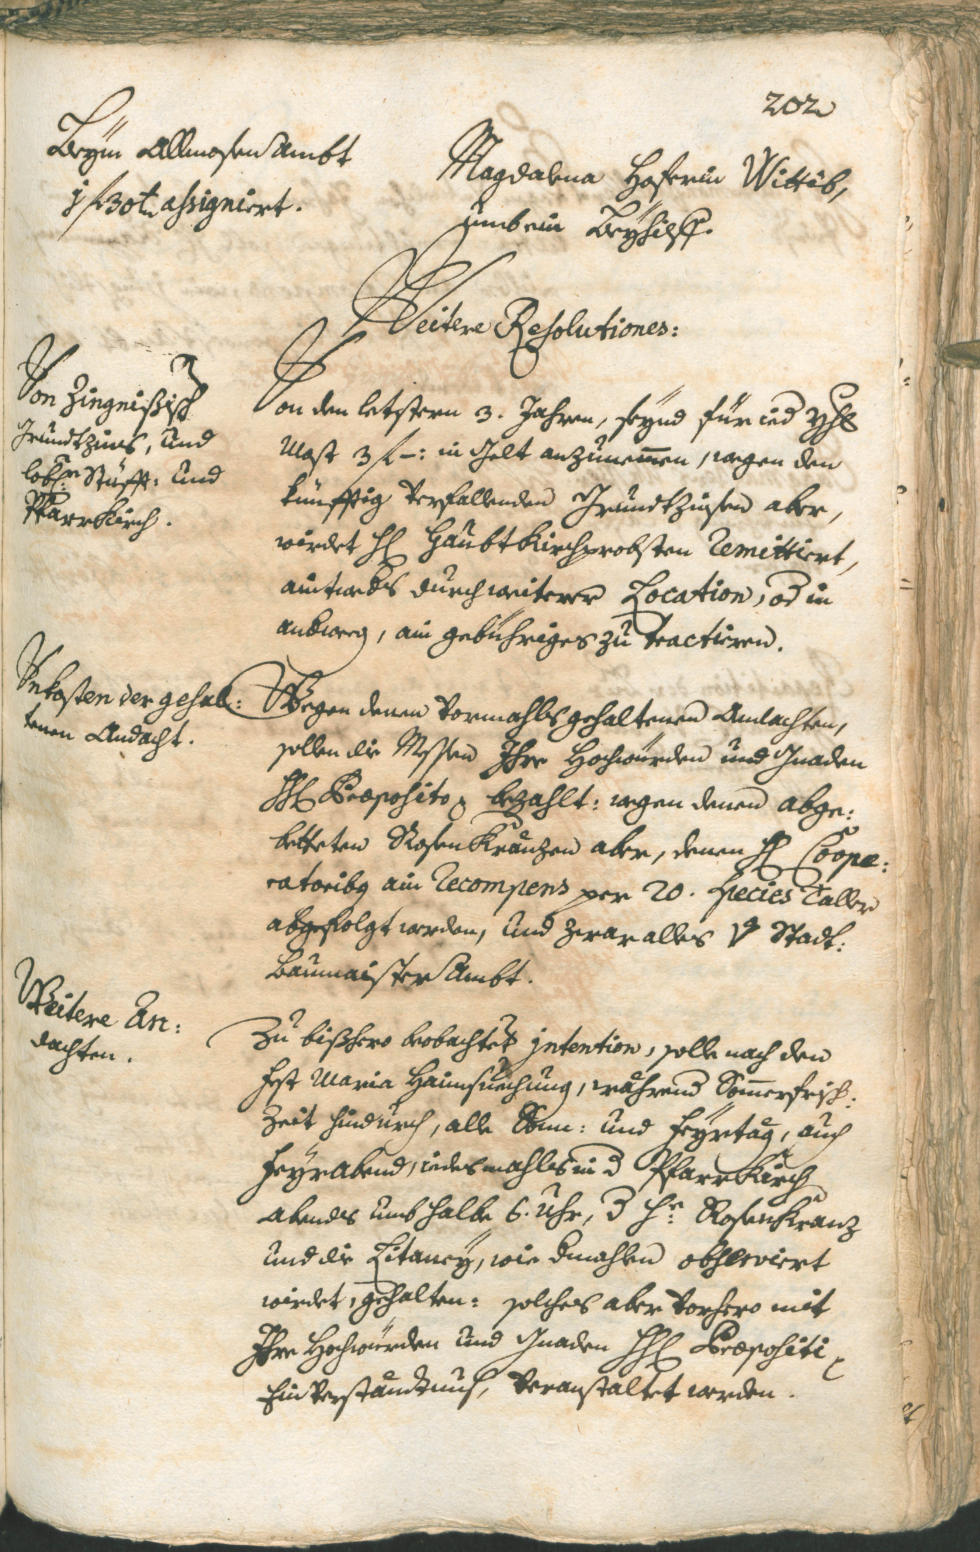 202
Beÿm Allmosen Ambt
1 f 30 t. assigniert.
Magdalena Hoferin Wittib,
umb ein Beÿhilff.
Weitere Resolutiones:
Von Zingnißisch
Grundtzins, und
lobh: Stüfft: und
Pfarrkirch.
Von den letstern 3. Jahren, seynd für ied Yhl
Most 3 f –: in Gelt anzunemmen, wegen den
künfftig verfallenden Grundtzinsen aber,
wirdet H: Haubt Kirchprobsten remittiert,
aintweders durch weitere Location, od in
andweg, ain gebühriges zu tractieren.
Unkosten der gehal:
tenen Andacht.
Wegen denen vormahls gehaltenen Andachten,
sollen die Messen Ihre Hochwürden und Gnaden
HH: Præposito, bezahlt: wegen denen abge:
betteten Rosen Kränzen aber, denen H: Coope:
ratoribq ain recompens per 20. Species Taller
abgefolgt werden, und zwar alles p Stadt:
Baumaister Ambt.
Weitere An:
dachten.
Zu bißhero beobachter intention, solle nach den
Fest Maria Haimsuechung, während Sommerfrisch:
Zeit hindurch, alle Sonn: und Feyrtäg, auch
Feyrabend, iedesmahls in d Pfarr Kirch
abends umb halbe 6. Uhr, d H: Rosenkranz
und die Litaneÿ, wie dmahlen observiert
wirdet, gehalten: solches aber vorhero mit
Ihre Hochwürden und Gnaden HH: Præpositi
Einverständtnus, veranstaltet werden.